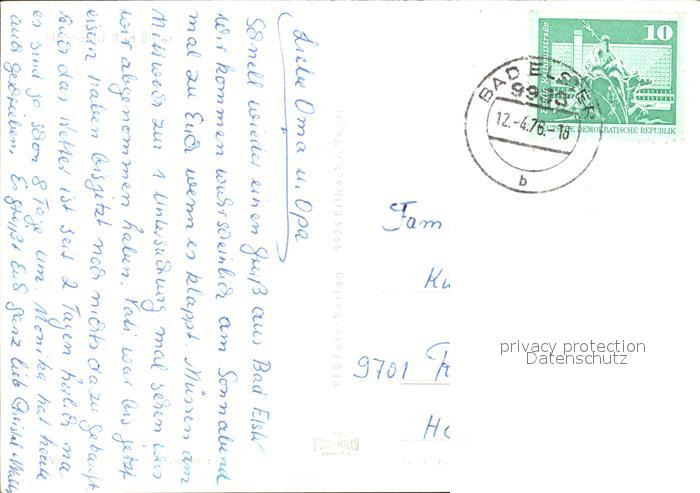 Liebe Oma u. Opa
Schnell wieder einen Gruß aus Bad Elster
wir kommen wahrscheinlich am Sonnabend
mal zu Euch wenn es klappt. Müssen am
Mittwoch zur 1 Untersuchung mal sehen was
wir abgenommen haben. Vati war bis jetzt
eisern haben bis jetzt noch nichts dazu gekauft.
das Wetter ist seit 2 Tagen herrlich na
es sind ja schon 8 Tage um. Monika hat heute
auch geschrieben. Es grüßt Euch ganz lieb Christel +
VEB Foto-Verlag 9936 Erlbach i. Vogtl.
BAD ELSTER
993
12.-4.76.-18
b
10
DEUTSCHE DEMOKRATISCHE REPUBLIK
Fam
9701
privacy protection
Datenschutz